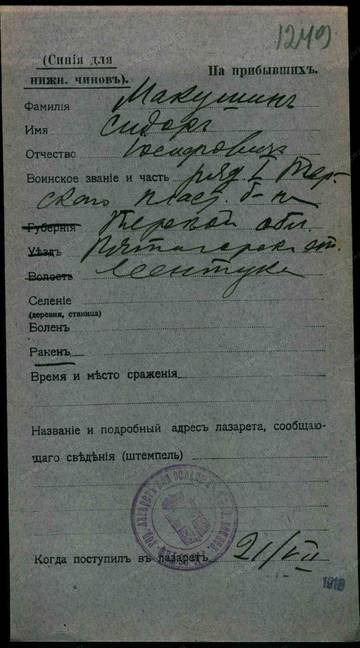 1249
(Синія для
нижн. чиновъ).
На прибывшихъ.
Фамилія Макушинъ
Имя Сидоръ
Отчество Юсифовичъ
Воинское званіе и часть ряд. 1 Тер-
скаго плас. б-на
Губернія Терской обл.
Уѣздъ Пятигорск. от.
Волость Эсентуки
Селеніе
(деревня, станица)
Боленъ
Раненъ
Время и мѣсто сраженія
Названіе и подробный адресъ лазарета, сообщаю-
щаго свѣдѣнія (штемпель)
Когда поступилъ въ лазаретъ 21/VII
1916